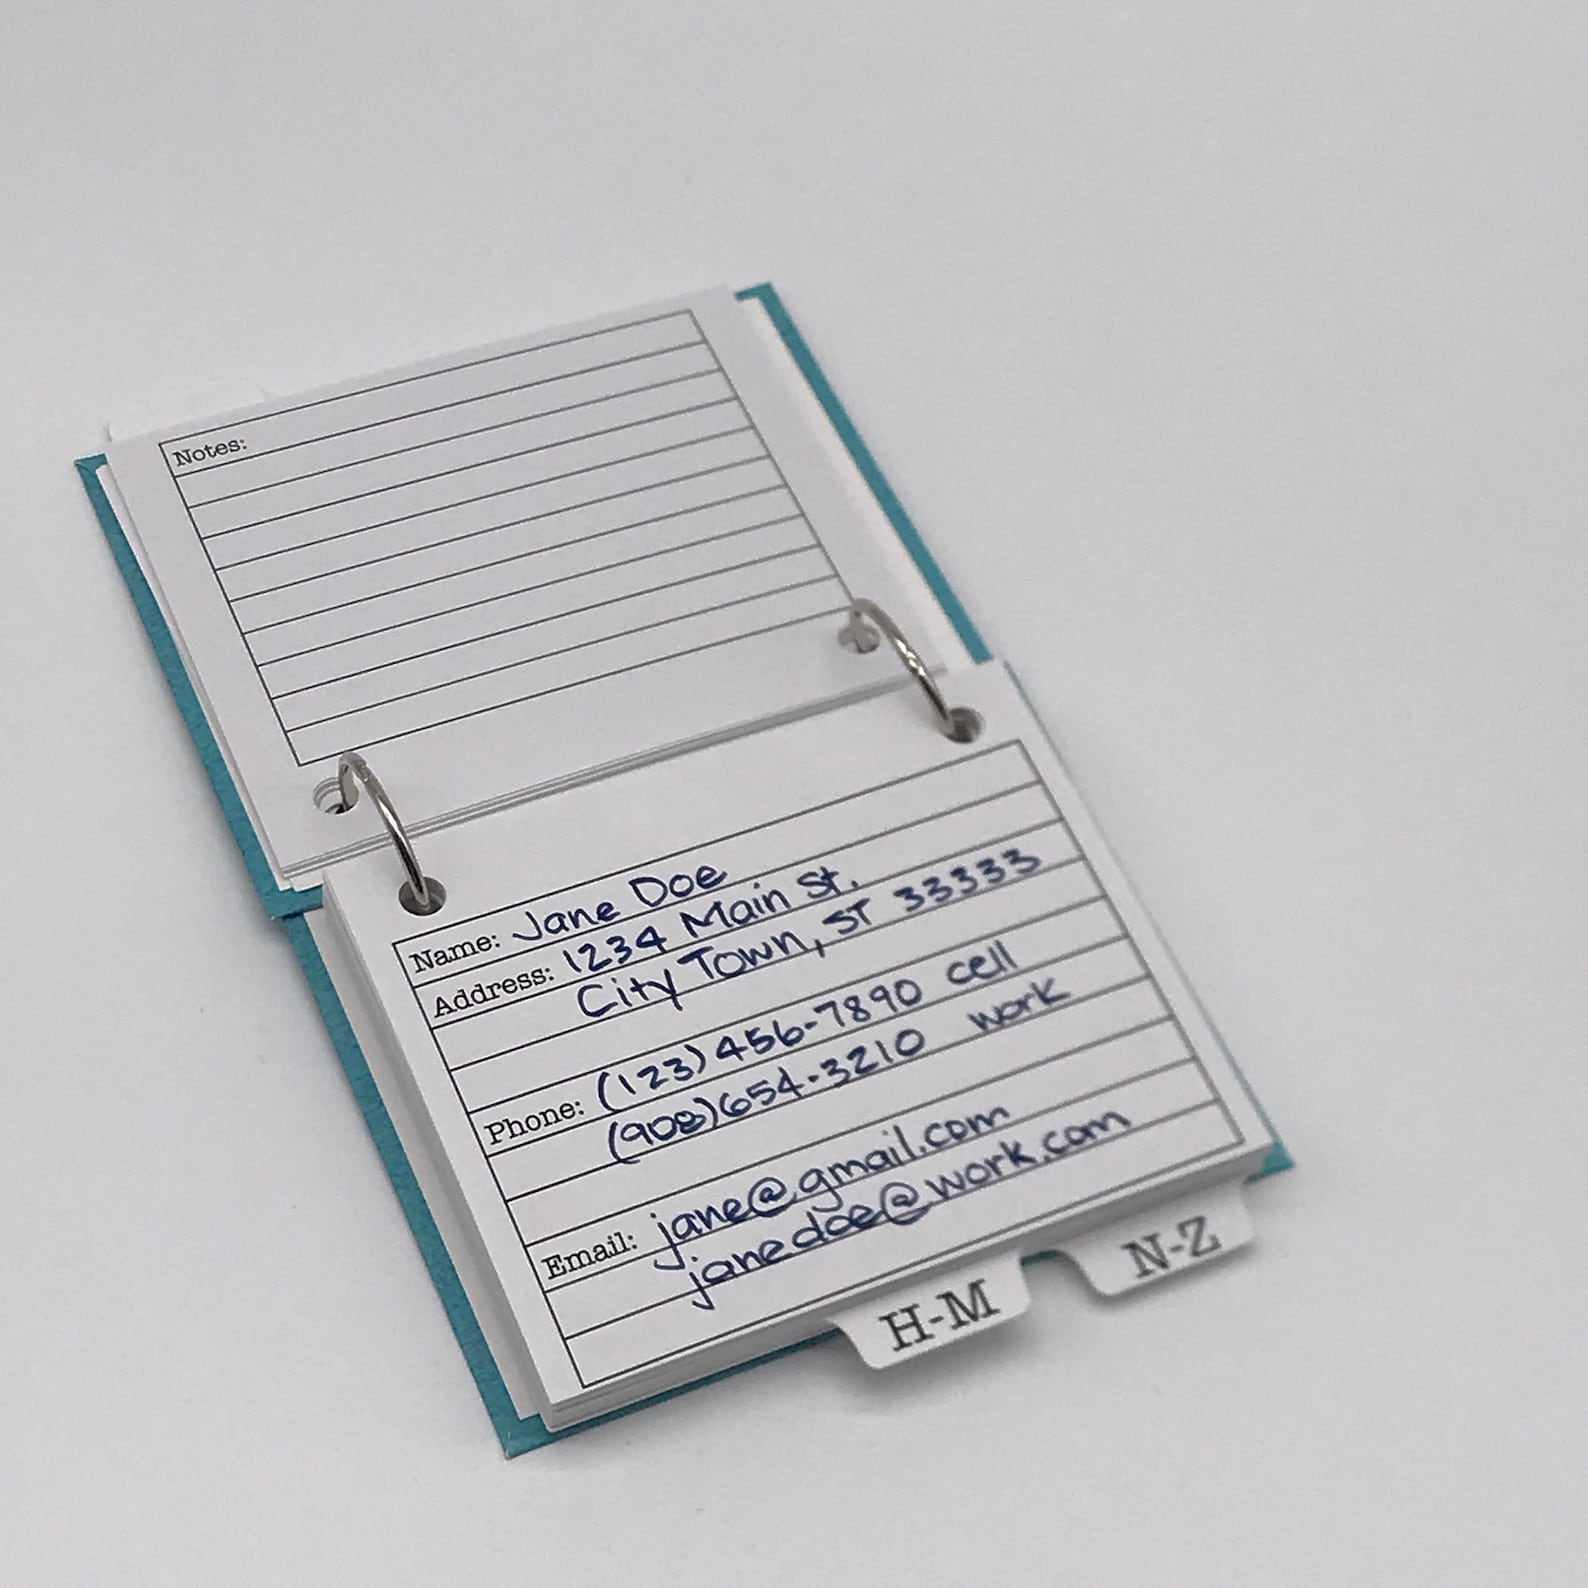 Notes:
Name: Jane Doe
Address: 1234 Main St.
City Town, ST 33333
Phone: (123) 456-7890 cell
(908) 654-3210 work
Email: jane@gmail.com
janedoe@work.com
H-M
N-Z